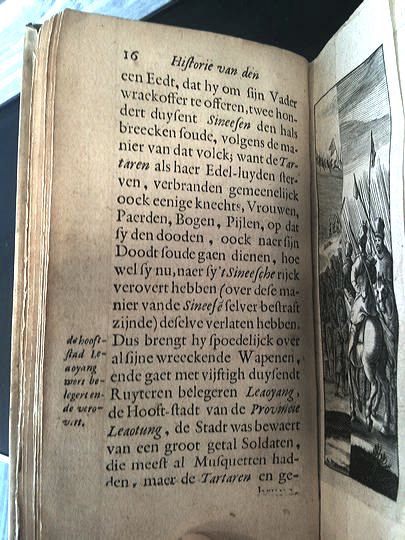 16 Historie van den
een Eedt, dat hy om sijn Vader
wraekoffer te offeren, twee hon-
dert duysent Sineesen den hals
breecken soude, volgens de ma-
nier van dat volck; want de Tar-
taren als haer Edel-luyden ster-
ven, verbranden gemeenelijck
oock eenige knechts, Vrouwen,
Paerden, Bogen, Pijlen, op dat
sy den dooden, oock naer sijn
Doodt soude gaen dienen, hoe
wel sy nu, naer sy 't Sineesche rijck
verovert hebben (over dese ma-
nier van de Sineesē selver bestraft
zijnde) deselve verlaten hebben.
Dus brengt hy spoedelijck over
al sijne wreeckende Wapenen,
ende gaet met vijftigh duysendt
Ruyteren belegeren Leaoyang,
de Hooft-stadt van de Provincie
Leaotung, de Stadt was bewaert
van een groot getal Soldaten,
die meest al Musquetten had-
den, maer de Tartaren en ge-
de hooft-
stad Le-
aoyang
wort be-
legert en-
de vero-
vert.